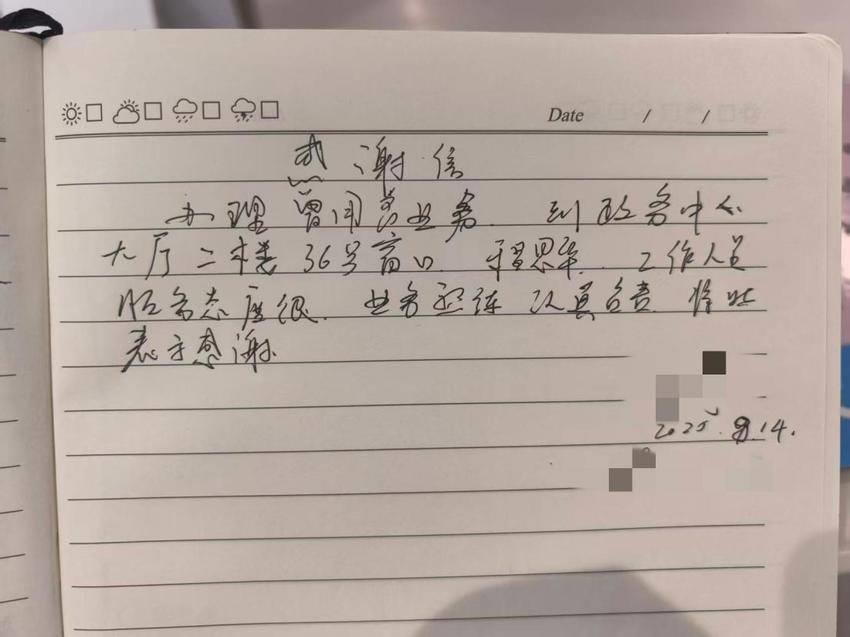 Date / /
感谢信
办理曾用名业务. 到政务中心
大厅二楼36号窗口. 工作人员
服务态度很. 业务熟练 认真负责. 特此
表示感谢
2025.8.14.